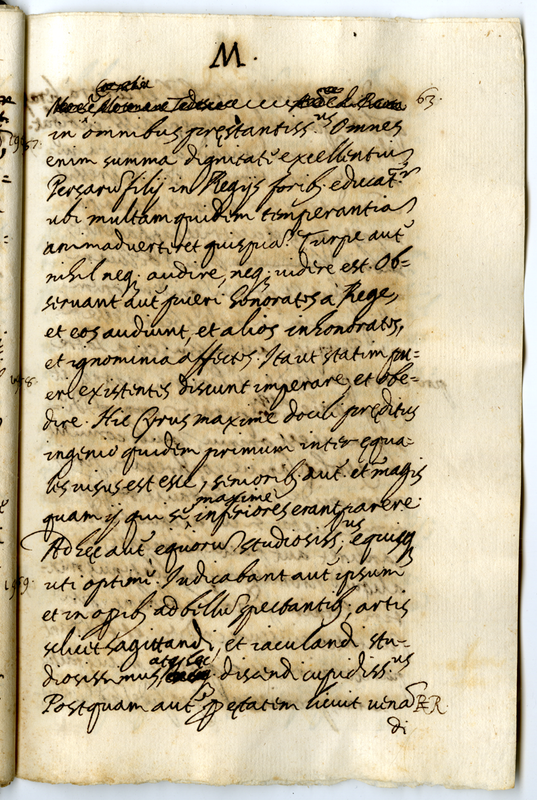 M.
63.
in omnibus pręstantiss.us Omnes
enim summa dignitate excellentiu
Persarũ filij in Regijs foribꝫ educat.r
ubi multam quidem temperantiã
animadverteret quispiã. Turpe aut̃
nihil neqꝫ audire, neqꝫ videre est. Ob=
servant aut̃ pueri honoratos à Rege,
et eos audiunt, et alios inhonoratos,
et ignominia affectos. Ita ut statim pu=
eri existentes discunt imperare, et obe=
dire. Hic Cyrus maxime docili pręditus
ingenio quidem primum inter ęqua-
les visus est esse, senioribꝫ aut̃ et magis
maxime
quam ij, qui sẽ inferiores erant parere.
Ad hęc aut̃ equorũ studiosiss.us, equisqꝫ
uti optimẽ. Iudicabant aut̃ ipsum
et in opibꝫ ad bellũ spectantibꝫ, artis
scilicet sagittandi, et iaculandi stu-
diosissimus atqꝫ discendi cupidiss.us
Postquam aut̃ ꝑ ętatem licuit vena
di